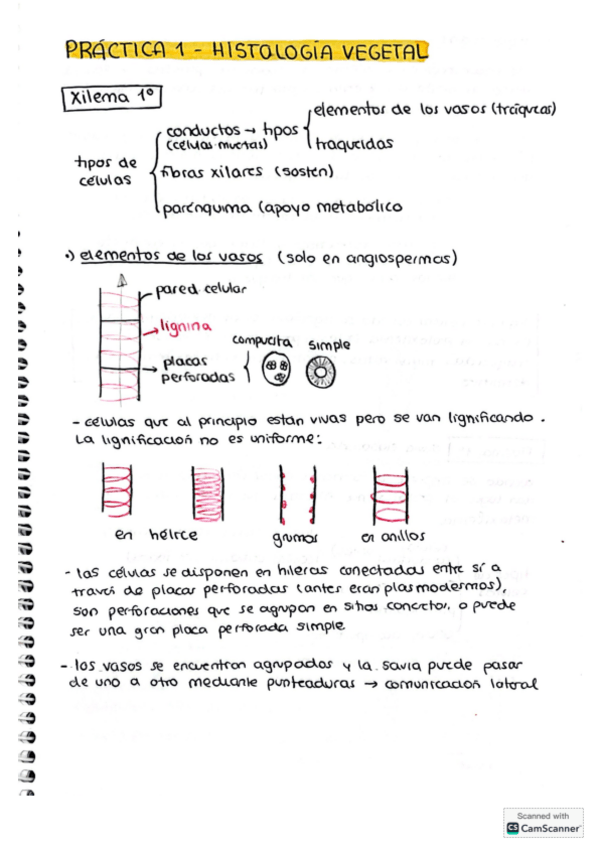 PRÁCTICA 1 - HISTOLOGÍA VEGETAL
Xilema 1º
tipos de células
conductos → tipos
(células muertas)
elementos de los vasos (tráqueas)
traqueidas
fibras xilares (sosten)
parénquima (apoyo metabólico
•) elementos de los vasos (solo en angiospermas)
pared celular
lignina
placas perforadas
compuesta
simple
- células que al principio están vivas pero se van lignificando.
La lignificación no es uniforme:
en hélice
grumos
en anillos
- las células se disponen en hileras conectadas entre sí a
través de placas perforadas (antes eran plasmodesmos),
son perforaciones que se agrupan en sitios concretos, o puede
ser una gran placa perforada simple
- los vasos se encuentran agrupados y la savia puede pasar
de uno a otro mediante punteaduras → comunicación lateral
Scanned with
CS CamScanner